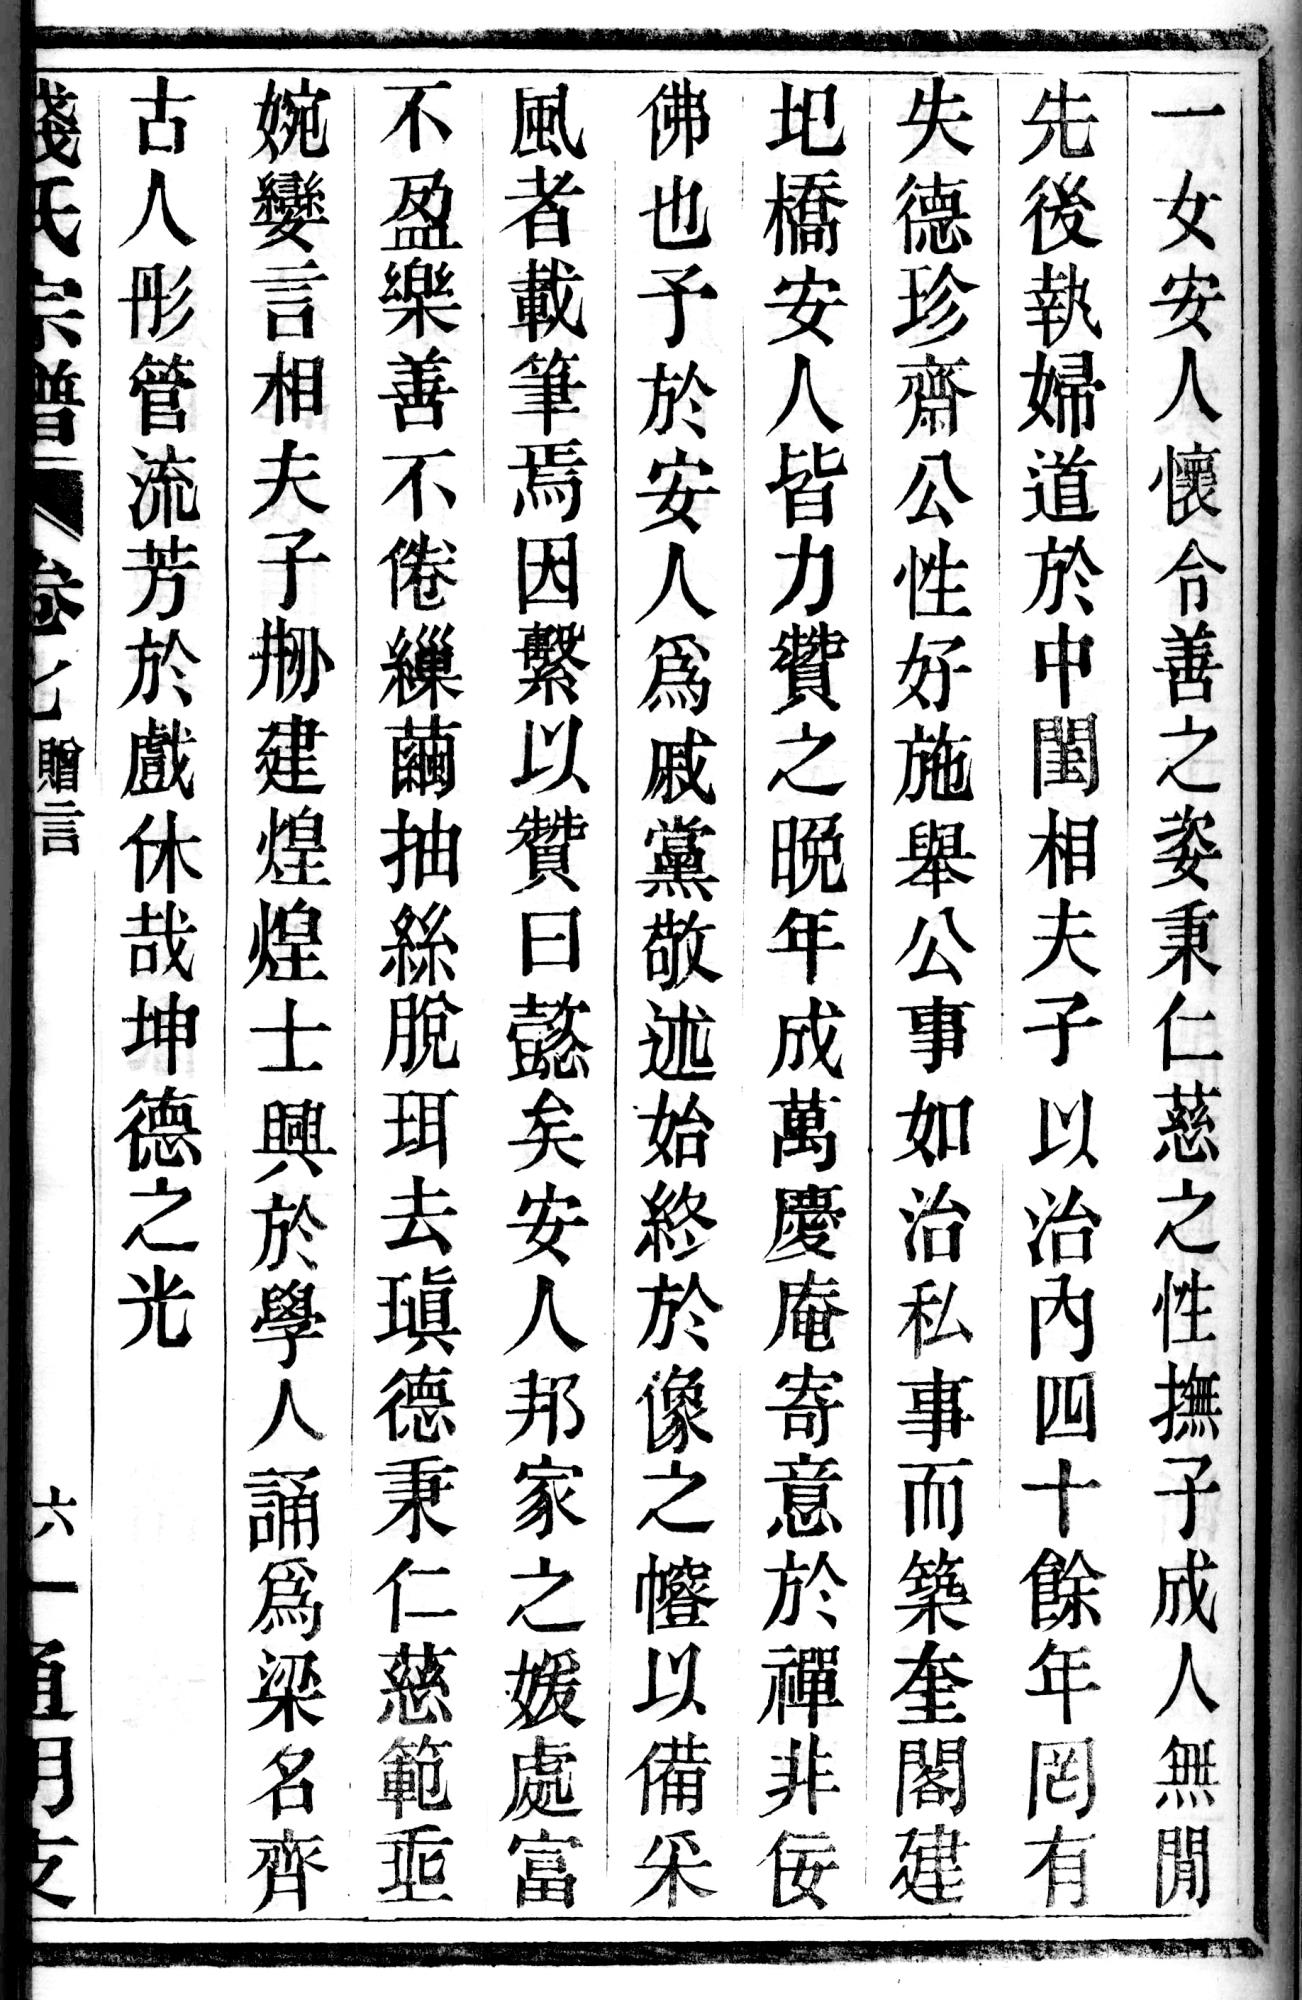 一女安人懷令善之姿秉仁慈之性撫子成人無閒
先後執婦道於中閨相夫子以治內四十餘年罔有
失德珍齋公性好施舉公事如治私事而築奎閣建
圯橋安人皆力贊之晩年成萬慶庵寄意於禪非佞
佛也予於安人爲戚黨敬述始終於像之㡧以備采
風者載筆焉因繫以贊曰懿矣安人邦家之媛處富
不盈樂善不倦繅繭抽絲脫珥去瑱德秉仁慈範垂
婉孌言相夫子刱建煌煌士興於學人誦爲梁名齊
古人彤管流芳於戲休哉坤德之光
錢氏宗譜 卷七 贈言 六一 通明支